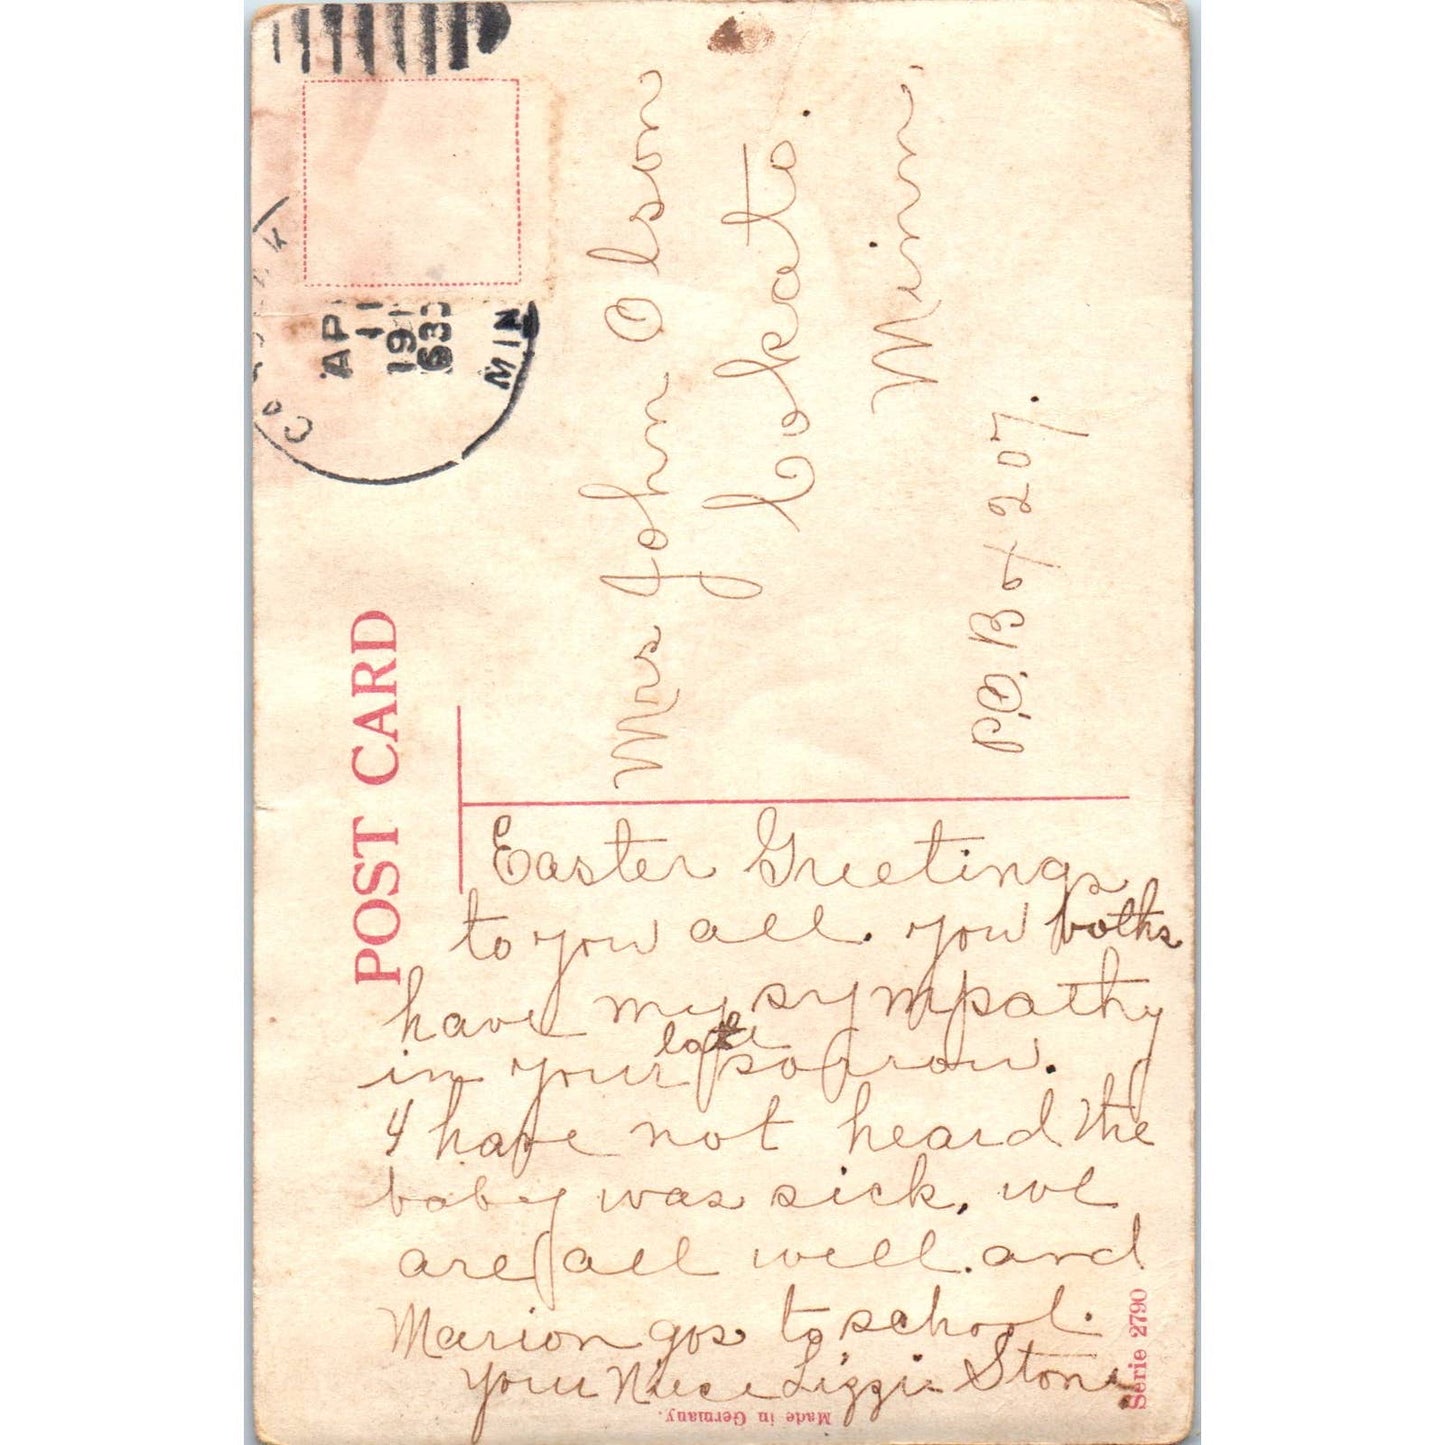 POST CARD
AP
11
191
MIN
Mrs John Olson
Cokato.
Minn.
P.O. Box 207.
Easter Greetings
to you all. you boths
have my sympathy
in your late sorrow.
I have not heard the
baby was sick, we
are all well. and
Marion gos to school.
your Niece Lizzie Stone
Serie 2790
Made in Germany.